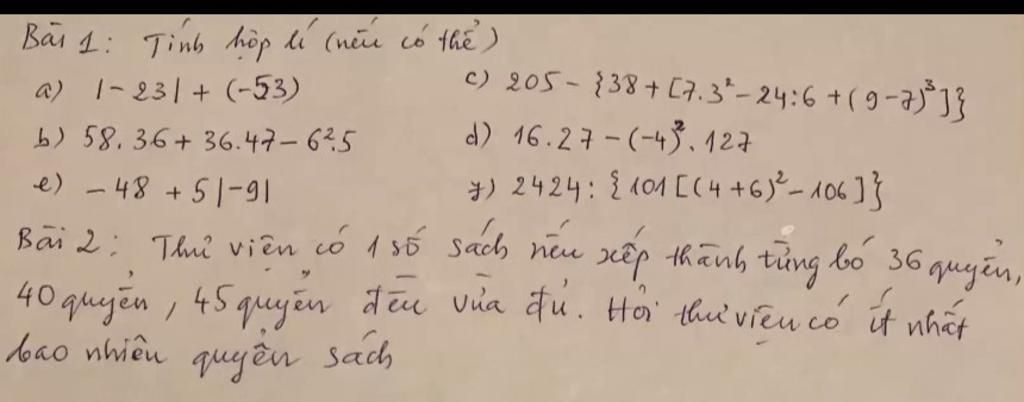 Bài 1: Tính hợp lí (nếu có thể)
a) |-23| + (-53)
c) 205 - {38 + [7.3² - 24:6 + (9-7)³]}
b) 58.36 + 36.47 - 6².5
d) 16.27 - (-4)².127
e) -48 + 5|-9|
g) 2424 : {101[(4+6)² - 106]}
Bài 2: Thư viện có 1 số sách nếu xếp thành từng bó 36 quyển,
40 quyển, 45 quyển đều vừa đủ. Hỏi thư viện có ít nhất
bao nhiêu quyển sách